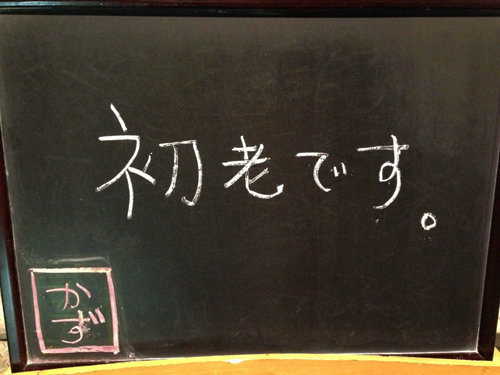 初老です。
かず